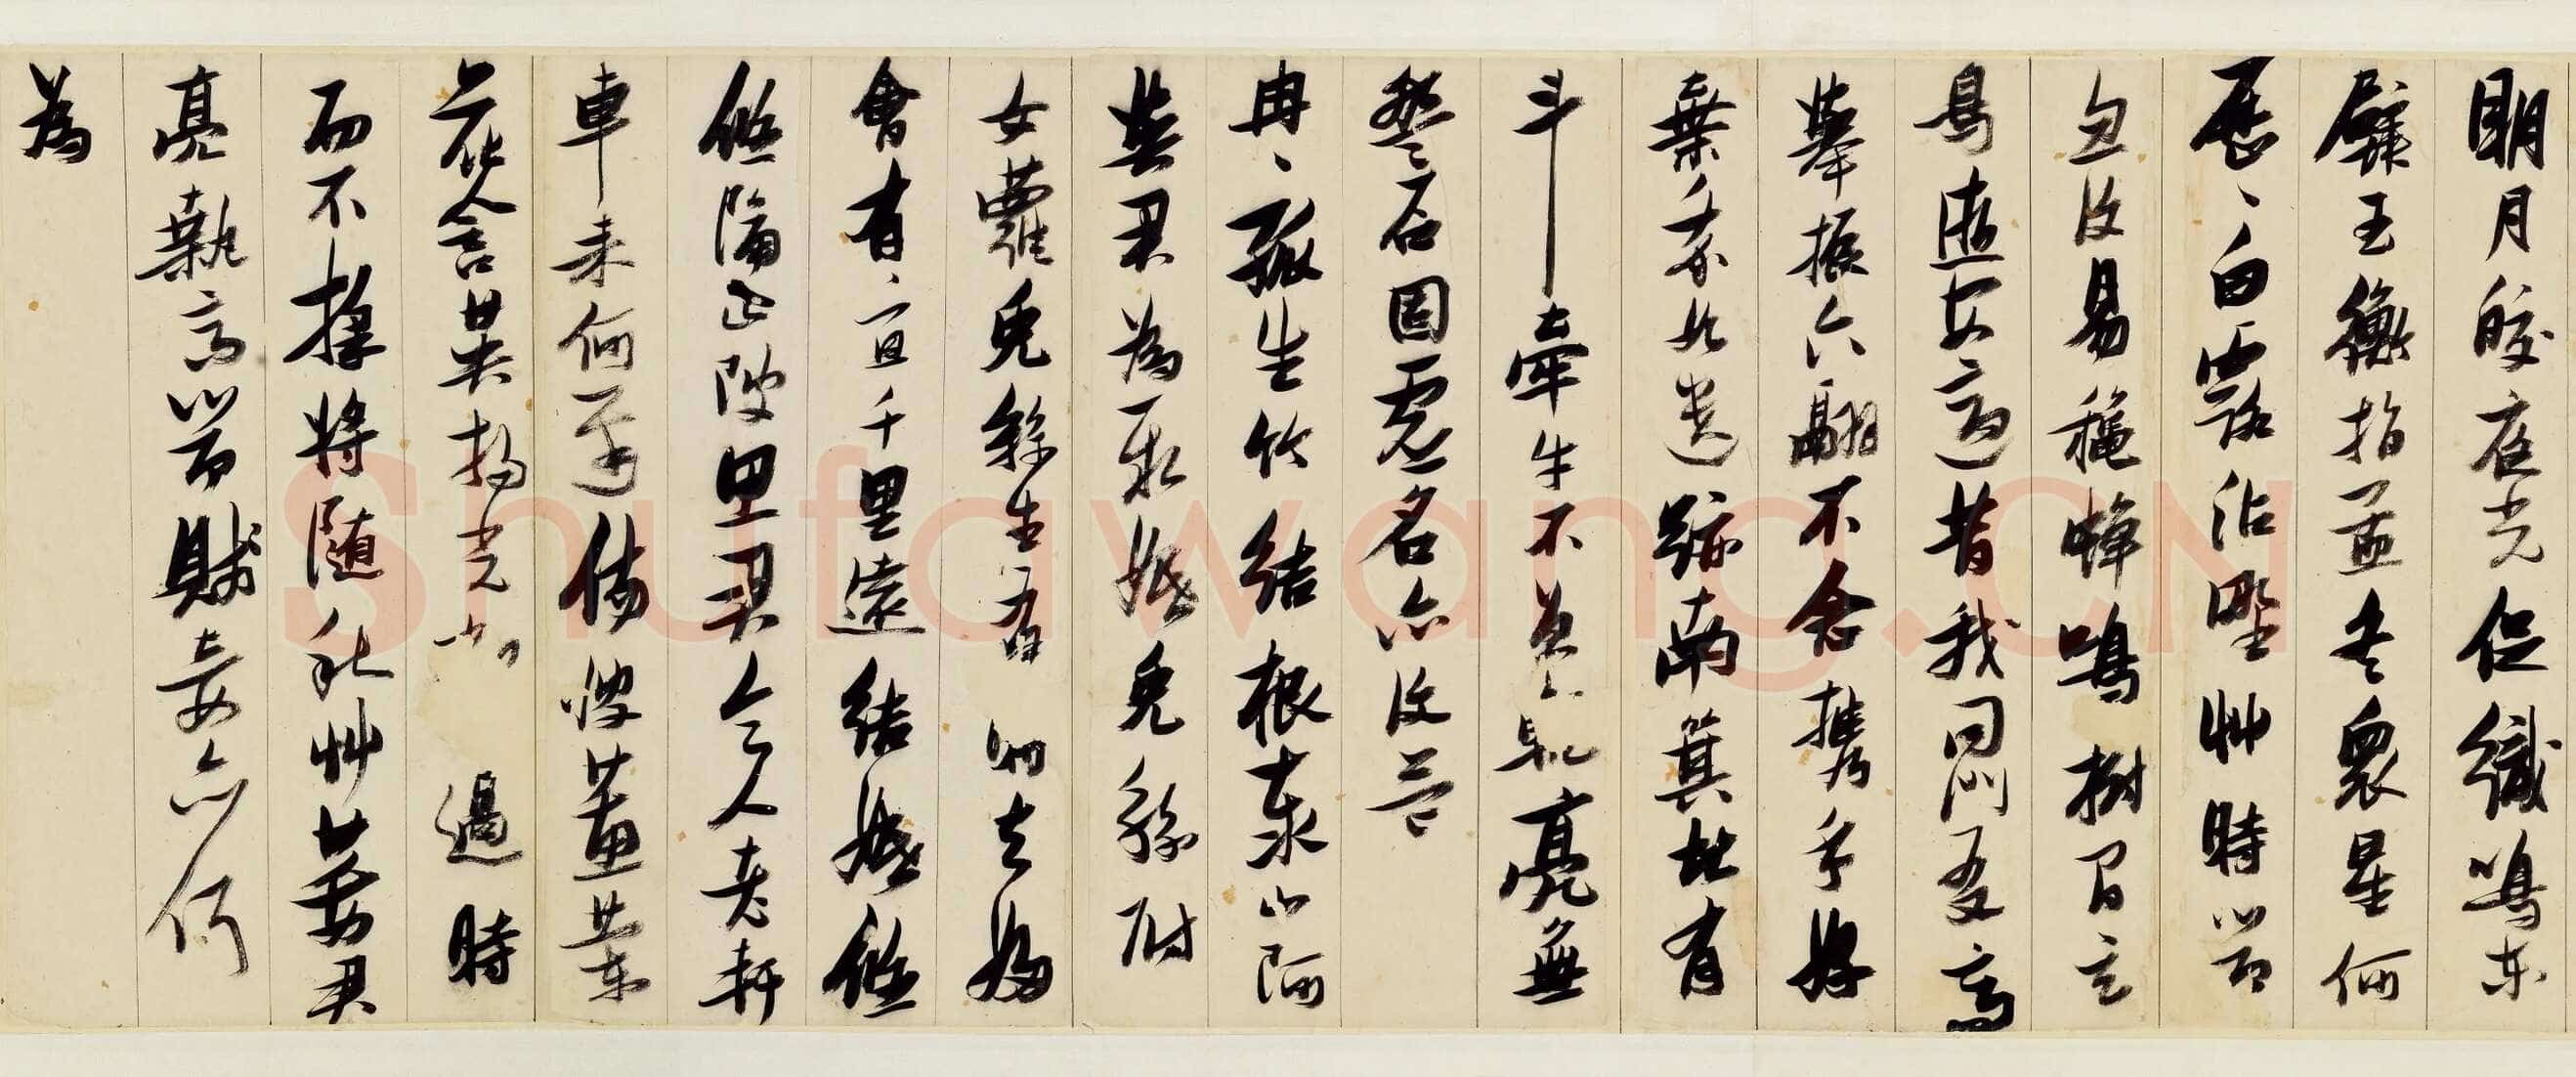 明月皎夜光促織鳴東
壁玉衡指孟冬衆星何
歷〻白露沾野艸時節
忽復易穐蟬鳴樹間玄
鳥逝安適昔我同門友高
舉振六翮不念攜手好
棄我如遺跡南箕北有
斗牽牛不負軛良無
盤石固虛名亦復益
冉〻孤生竹結根泰山阿
與君為新婚兔絲附
女蘿兔絲生有時夫婦
會有〻宜千里遠結婚悠
悠隔山陂思君令人老軒
車來何遲傷彼蕙蘭
花含英揚光輝過時
而不採將隨秋艸萎君
亮執高節賤妾亦何
為
Shufawang.CN